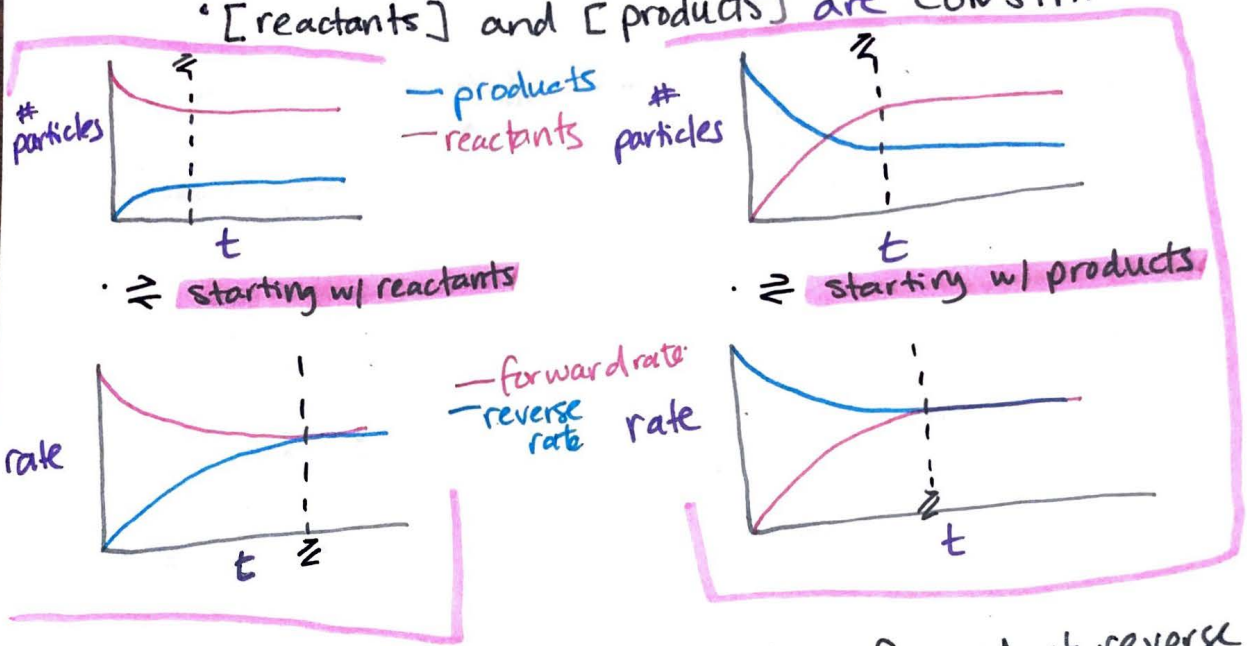 • [reactants] and [products] are
# particles
⇌
— products
— reactants
t
• ⇌ starting w/ reactants
# particles
⇌
t
• ⇌ starting w/ products
rate
t
⇌
— forward rate
— reverse rate
rate
⇌
t
reverse